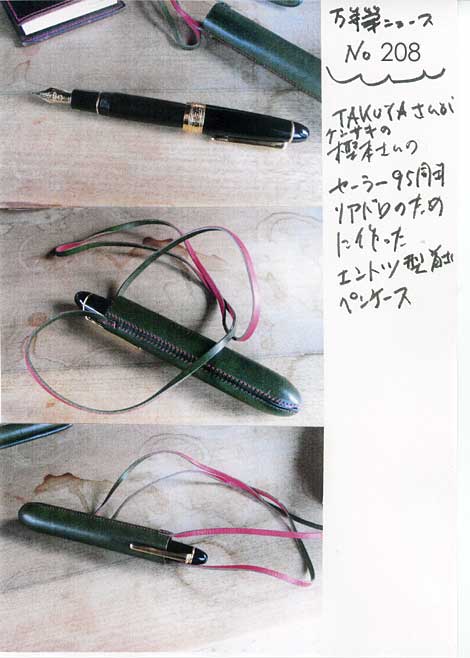 万年筆ニュース
No 208
TAKUYAさんが
ケンサキの
さんの
セーラー95周年
リアドロのため
に作った
エントツ型
ペンケース